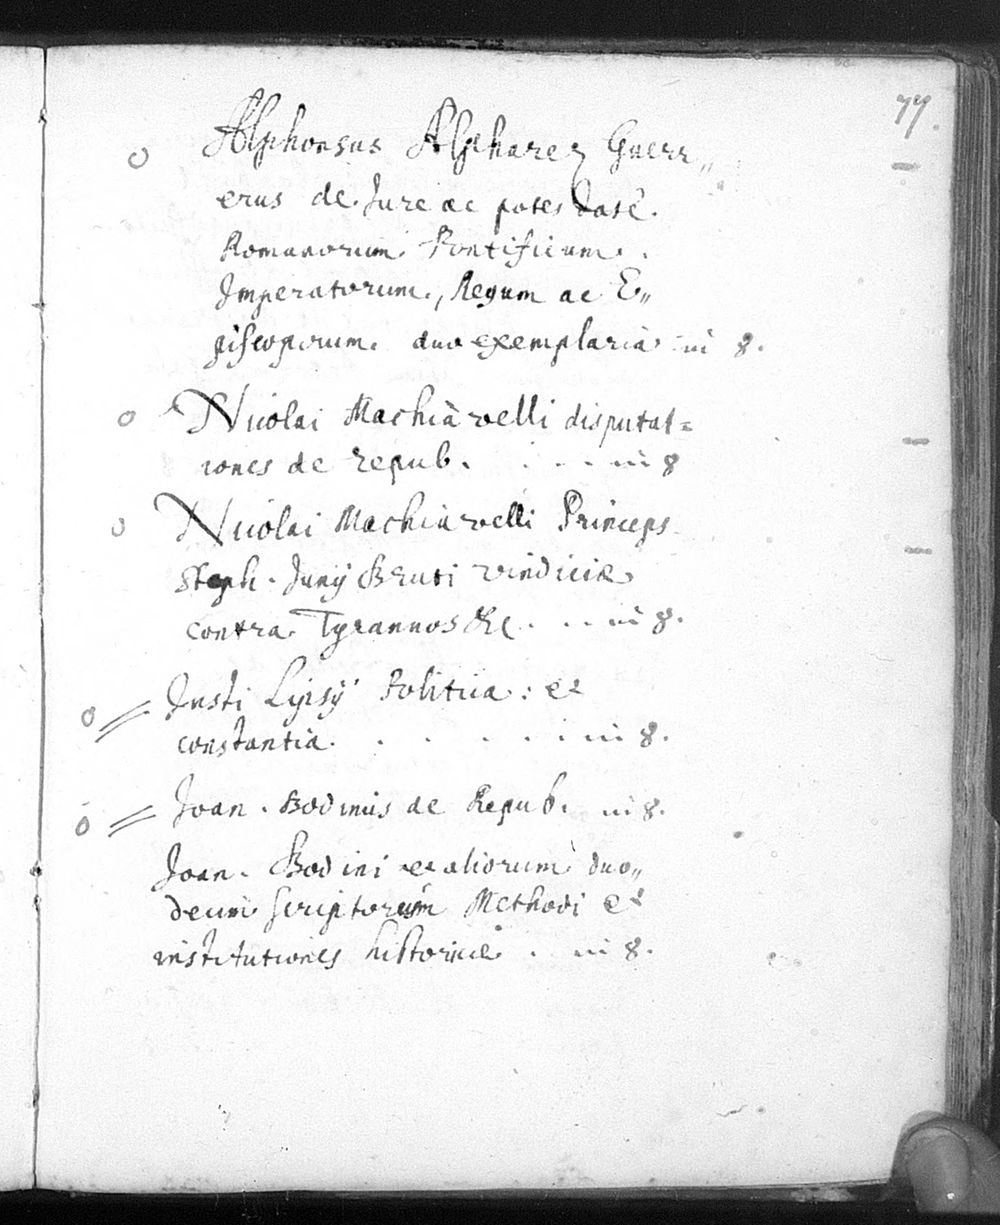 77.
o Alphonsus Alpharez Guerr„
erus de Jure ac potestate
Romanorum Pontificum.
Imperatorum, Regum ac E„
piscoporum. duo exemplaria in 8.
o Nicolai Machiavelli disputat=
iones de repub. . . . in 8
o Nicolai Machiavelli Princeps
Steph. Junij Bruti vindiciæ
contra Tyrannos &c . . . in 8.
o Justi Lipsij Politica : et
constantia. . . . . . . in 8.
o Joan. Bodinus de Repub. in 8.
Joan. Bodini et aliorum duo„
decim scriptorum Methodi et
institutiones historicæ . . in 8.